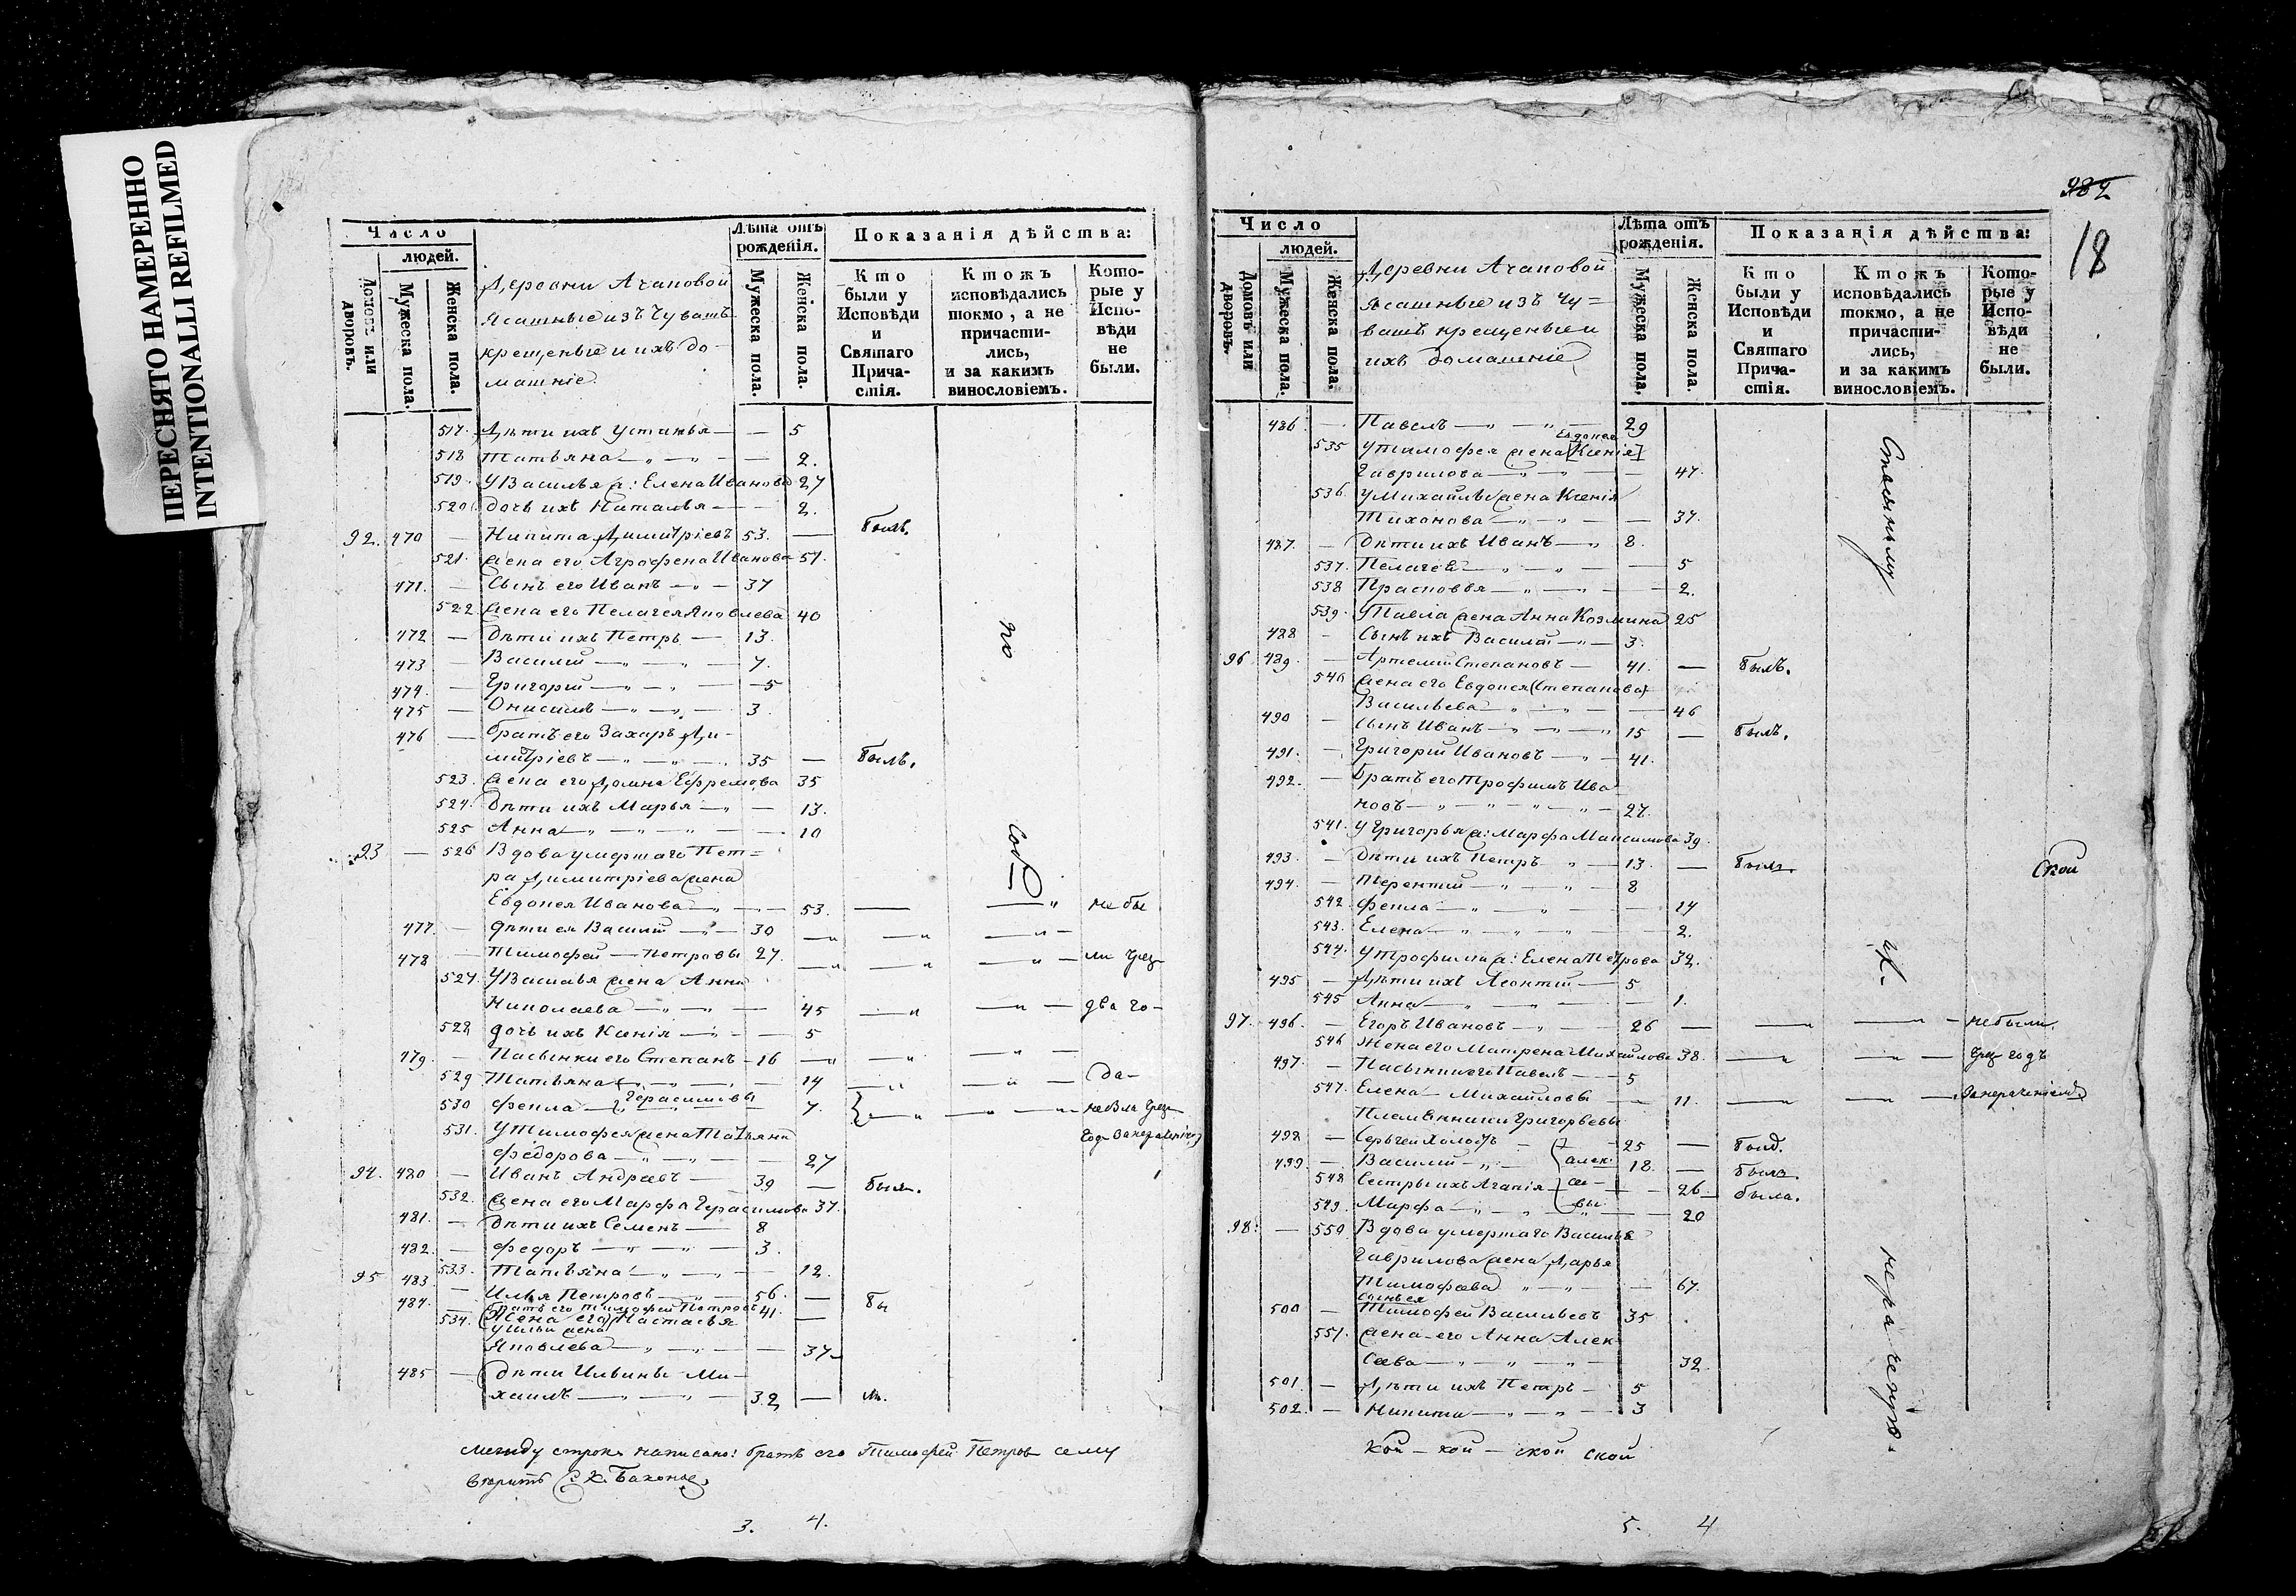 ПЕРЕСНЯТО НАМЕРЕННО
INTENTIONALLI REFILMED
Число
людей.
Домовъ или дворовъ.
Мужеска пола.
Женска пола.
Деревни Агаповой
Ясашные изъ Чувашъ
крещеные и ихъ до-
машніе
Лѣта отъ рожденія.
Мужеска пола.
Женска пола.
Показанія дѣйства:
Кто были у Исповѣди и Святаго Причастія.
Ктожъ исповѣдались токмо, а не причастились, и за какимъ винословіемъ.
Которые у Исповѣди не были.
517. Дѣти ихъ Устинья — — 5
518 Татьяна — „ — „ — — 2.
519. У Василья ж: Елена Иванова 27
520 дочь ихъ Наталья — — 2.
92. 470 — Никита Димитріевъ 53. — былъ.
521. жена его Агрофена Иванова 51.
471. — Сынъ его Иванъ — „ — 37
522 жена его Пелагея Яковлева 40
472 — Дѣти ихъ Петръ — 13.
473 — Василій — „ — „ — 7.
474. — Григорій — „ — „ — 5
475 — Онисимъ — „ — „ — 3.
476 — братъ его Захаръ Ди-
митріевъ — „ — „ — 35 — былъ.
523. жена его Домна Ефремова 35
524. Дѣти ихъ Марья — „ — 13.
525 Анна — „ — „ — „ — 10
93 — 526 Вдова умершаго Пет=
ра Димитріева жена
Евдокея Иванова — „ — 53. — — „ не бы
477. — дѣти ея Василій — „ — 30 — „ — „ — „ —
478 — Тимофей — Петровы 27. — „ — „ — „ — ли чрез
527. У Василья жена Анна
Николаева — „ — „ — 45 — „ — „ — два го-
528 дочь ихъ Ксенія — „ — — 5
479. — Пасынки его Степанъ — 16 — „ — „ — „ —
529 Татьяна — „ — „ — 14 — „ — „ — да-
Герасимовы
530 Фекла — „ — 7. — „ — „ —
531. У Тимофея жена Татьяна
Федорова — „ — „ — 27
94. 480 — Иванъ Андреевъ — 39 — былъ.
532. жена его Марфа Герасимова 37.
481. — Дѣти ихъ Семенъ — 8
482. — Федоръ — „ — „ — 3.
533. Татьяна — „ — „ — 12.
95 483 — Илья Петровъ — „ — 56. — бы
484. — братъ его Тимофей Петровъ 41. —
534. Жена его Настасья
У Ильи жена
Яковлева — „ — „ — — 37
485 — Дѣти Ильины Ми-
хаилъ — „ — „ — 32 — лъ.
по
между строкъ написано: братъ его Тимофей Петров сему
вѣрить
3. 4.
282
18
Число
людей.
Домовъ или дворовъ.
Мужеска пола.
Женска пола.
Деревни Агаповой
Ясашные изъ Чу=
вашъ крещеные и
ихъ домашніе
Лѣта отъ рожденія.
Мужеска пола.
Женска пола.
Показанія дѣйства:
Кто были у Исповѣди и Святаго Причастія.
Ктожъ исповѣдались токмо, а не причастились, и за какимъ винословіемъ.
Которые у Исповѣди не были.
486. — Павелъ — „ — „ — 29
Евдокея
535 У Тимофея жена [Ксенія]
Гаврилова — „ — „ — — 47.
536. У Михаилы жена Ксенія
Тихонова — „ — „ — — 37.
487. — Дѣти ихъ Иванъ — „ 8.
537. Пелагея — „ — „ — — 5
538 Прасковья — „ — „ — — 2.
539. У Павла жена Анна Козмина 25
488 — Сынъ ихъ Василій — „ — 3.
96 489. — Артемій Степановъ — 41. — былъ.
540 жена его Евдокея (Степанова)
Васильева — „ — „ — — 46
490 — Сынъ Иванъ — „ — „ 15 — былъ.
491. — Григорій Ивановъ — „ — 41.
492. — братъ его Трофимъ Ива
новъ — „ — „ — „ — 27.
541. У Григорья ж: Марфа Максимова 39.
493. — Дѣти ихъ Петръ — „ — 13. — былъ.
494. — Терентій — „ — „ — 8
542. Фекла — „ — „ — — 14
543. Елена — „ — „ — „ — 2.
544. У Трофима ж: Елена Петрова 32.
495 — Дѣти ихъ Леонтій — 5
545 Анна — „ — „ — 1.
97. 496. — Егоръ Ивановъ — „ — 26 — — „ — „ — не были
546 Жена его Матрена Михайлова 38. — „ — „ — чрез годъ
497. — Пасынки его Павелъ — 5
547. Елена — Михайловы — 11. — „ — „ — за нераченіемъ
Племянники Григорьевы
498 — Сергей Холостъ — 25 — былъ.
499. — Василій — „ — 18. — былъ.
548 Сестры ихъ Агапія — 26 — была.
549. Марфа — „ — „ — — 20
алек- се- вы
98. — 550 Вдова умершаго Василья
Гаврилова жена Дарья
Тимофеева „ — „ — — 67.
сынъ ея
500 — Тимофей Васильевъ 35
551. жена его Анна Алек
сеева — „ — „ — „ — 32.
501. — Дѣти ихъ Петръ — 5
502. — Никита — „ — „ — 3
ской
кой — кой — ской ской
5. 4